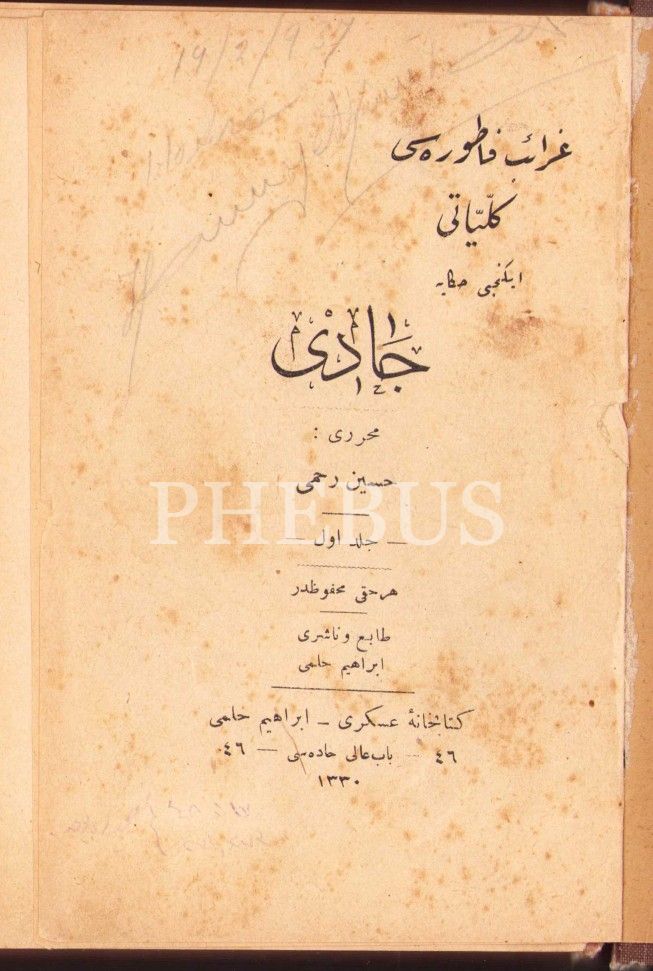 19/2/937
غرائب فاطوره‌سی
كلّیّاتی
ایكنجی حكایه
جادی
محرری :
حسین رحمی
PHEBUS
— جلد اول —
هر حقی محفوظدر
طابع و ناشری
ابراهیم حلمی
كتابخانهٔ عسكری – ابراهیم حلمی
٤٦ — باب عالی جاده‌سی — ٤٦
١٣٣٠